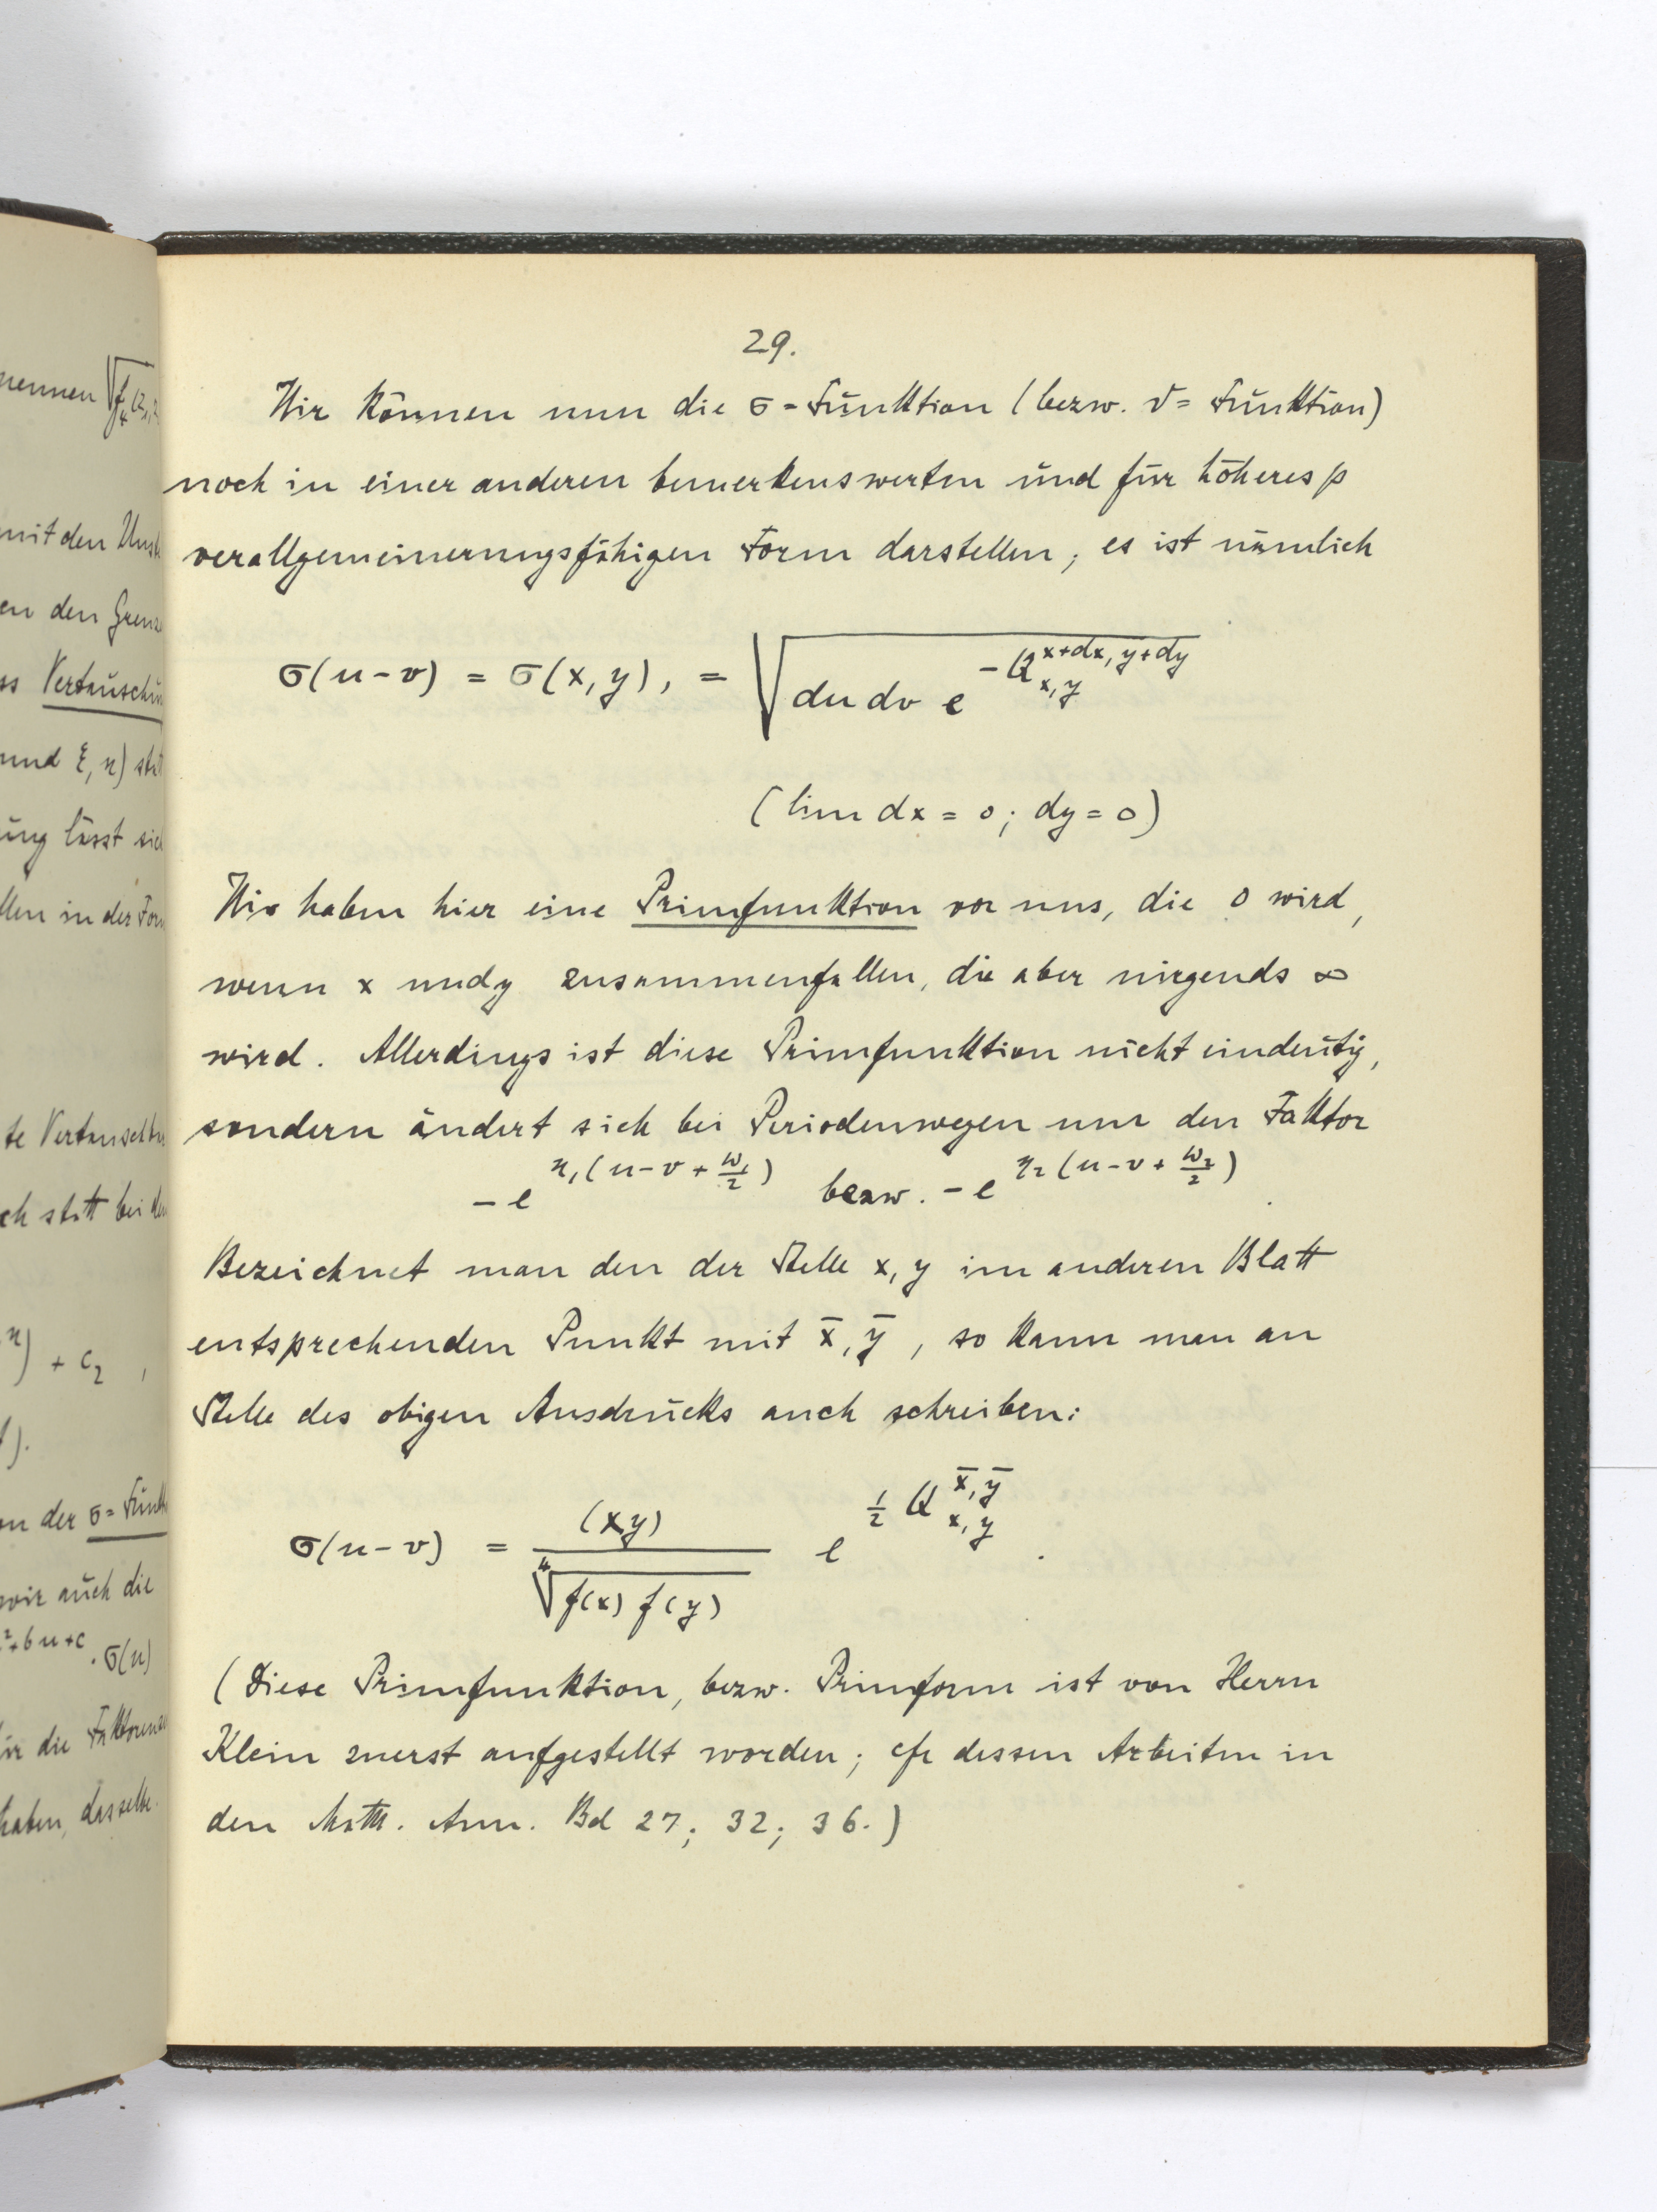 nennen √f₄(z₁,z
mit den Um
en den Grenz
ss Vertauschu
und ξ, η) sta
ung lässt sic
llen in der For
te Vertausch
ch statt bei de
η) + c₂ ,
).
on der σ = Funk
wir auch die
²+bu+c . σ(u)
ür die Faktoren
haben, dasselbe.
29.
Wir können nun die σ = Funktion (bezw. ϑ = Funktion)
noch in einer anderen bemerkenswerten und für höheres p
verallgemeinerungsfähigen Form darstellen; es ist nämlich
σ(u-v) = σ(x,y), = √(du dv e^{-Q_{x,y}^{x+dx, y+dy}})
(lim dx = 0; dy = 0)
Wir haben hier eine Primfunktion vor uns, die 0 wird,
wenn x und y zusammenfallen, die aber nirgends ∞
wird. Allerdings ist diese Primfunktion nicht eindeutig,
sondern ändert sich bei Periodenwegen um den Faktor
-e^{η₁(u-v+ω₁/2)} bezw. -e^{η₂(u-v+ω₂/2)}.
Bezeichnet man den der Stelle x, y im anderen Blatt
entsprechenden Punkt mit x̄, ȳ, so kann man an
Stelle des obigen Ausdrucks auch schreiben:
σ(u-v) = (xy) / ∜(f(x) f(y)) e^{½ Q_{x,y}^{x̄,ȳ}}.
(Diese Primfunktion, bezw. Primform ist von Herrn
Klein zuerst aufgestellt worden; cfr dessen Arbeiten in
den Math. Ann. Bd 27; 32; 36.)